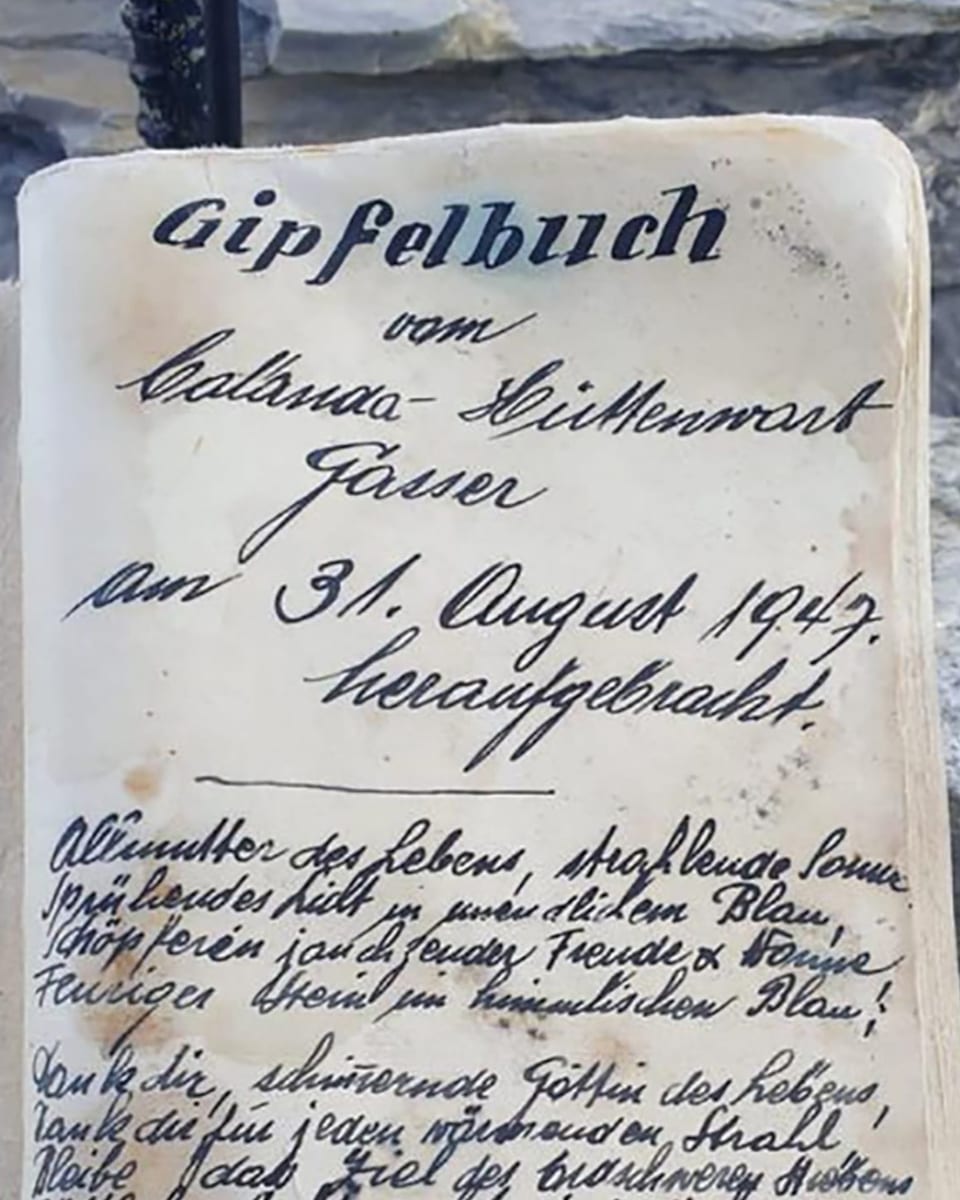 Gipfelbuch
vom
Callanda- Hüttenwart
Gasser
am 31. August 1947.
heraufgebracht.
Allmutter des Lebens, strahlende Sonne
Sprühendes Licht in unendlichem Blau,
Schöpferin jauchzender Freude & Wonne
Feuriger Stein im himmlischen Blau!
Dank dir, schimernde Göttin des Lebens,
Dank dir für jeden wärmenden Strahl
Bleibe das Ziel des erdschweren Strebens